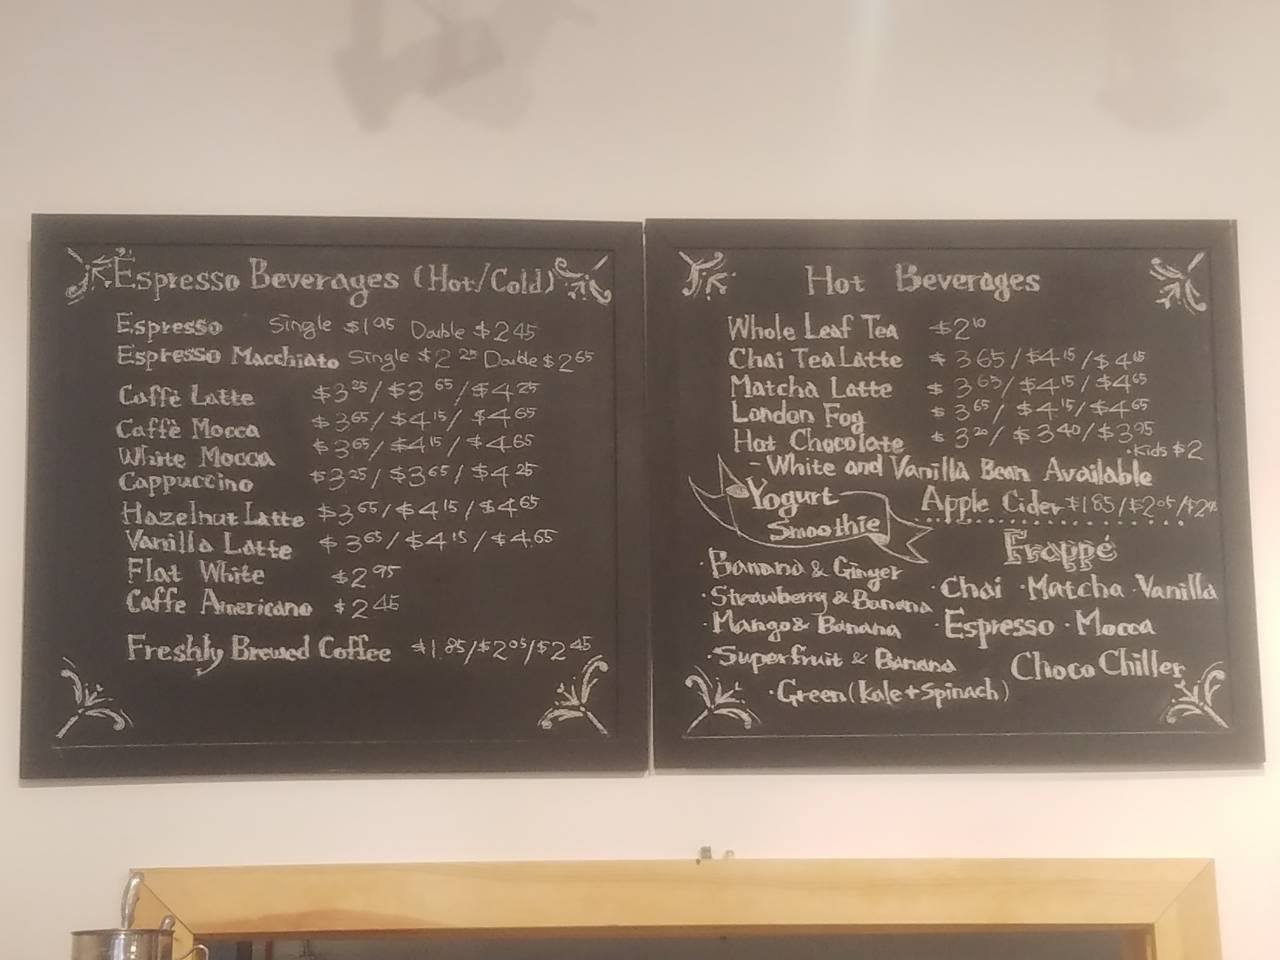 Espresso Beverages (Hot/Cold)
Espresso Single $1.95 Double $2.45
Espresso Macchiato Single $2.25 Double $2.65
Caffè Latte $3.25/$3.65/$4.25
Caffè Mocca $3.65/$4.15/$4.65
White Mocca $3.65/$4.15/$4.65
Cappuccino $3.25/$3.65/$4.25
Hazelnut Latte $3.65/$4.15/$4.65
Vanilla Latte $3.65/$4.15/$4.65
Flat White $2.95
Caffe Americano $2.45
Freshly Brewed Coffee $1.85/$2.05/$2.45
Hot Beverages
Whole Leaf Tea $2.10
Chai Tea Latte $3.65/$4.15/$4.65
Matcha Latte $3.65/$4.15/$4.65
London Fog $3.65/$4.15/$4.65
Hot Chocolate $3.20/$3.40/$3.95
·Kids $2
- White and Vanilla Bean Available
Apple Cider $1.85/$2.05/
Yogurt
Smoothie
·Banana & Ginger
·Strawberry & Banana
·Mango & Banana
·Superfruit & Banana
·Green (Kale + Spinach)
Frappé
·Chai ·Matcha ·Vanilla
·Espresso ·Mocca
Choco Chiller